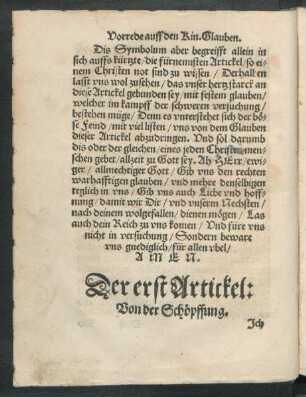 Vorrede auff den Kin. Glauben.
Dis Symbolum aber begreifft allein in
sich auffs kürtzte / die fürnemisten Artickel / so ei-
nem Christen not sind zu wissen / Derhalben
lasst vns wol zusehen / das vnser hertz starck an
diese Artickel gebunden sey / mit festem glauben /
welcher im kampff der schweren versuchung /
bestehen müge / Denn es vnterstehet sich der bö-
se Feind / mit viel listen / vns von dem Glauben
dieser Artickel abzudringen. Vnd sol darumb
dis oder der gleichen / eines jeden Christen men-
schen gebet / allzeit zu Gott sey. Ah HErr / ewi-
ger / allmechtiger Gott / Gib vns den rechten
warhafftigen glauben / vnd mehre denselbigen
teglich in vns / Gib vns auch Liebe vnd hoff-
nung / damit wir Dir / vnd vnserm Nechsten /
nach deinem wolgefallen / dienen mögen / Las
auch dein Reich zu vns komen / Vnd füre vns
nicht in versuchung / Sondern beware
vns gnediglich / für allen vbel /
AMEN.
Der erst Artickel:
Von der Schöpffung.
Ich